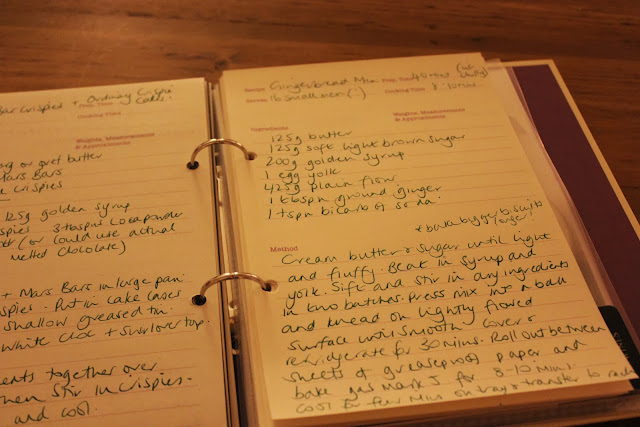 Bar Crispies + Ordinary Crispie
Cakes.
Cooking Time
Weights, Measurements
& Approximates
or 90g butter
Mars Bars
Crispies
125g golden syrup
3 tbspns cocoa powder
(or could use actual
melted chocolate)
+ Mars Bars in large pan
Put in cake cases
shallow greased tin.
White choc + swirl over top.
together over
stir in crispies.
and cool.
Recipe Gingerbread Men Prep. Time
Serves 16 small men (!) Cooking Time
Weights, Measurements
& Approximates
Ingredients
125g butter
125g soft light brown sugar
200g golden syrup
1 egg yolk
425g plain flour
1 tbspn ground ginger
1 tspn bicarb of soda.
* bake bigger biscuits
longer!
Method
Cream butter & sugar until light
and fluffy. Beat in syrup and
yolk. Sift and stir in dry ingredients
in two batches. Press mix into a ball
and knead on lightly floured
surface until smooth. Cover &
refridgerate for 30 mins. Roll out between
sheets of greaseproof paper and
bake gas mark 5 for 8-10 mins.
Cool for few mins on tray & transfer to rack